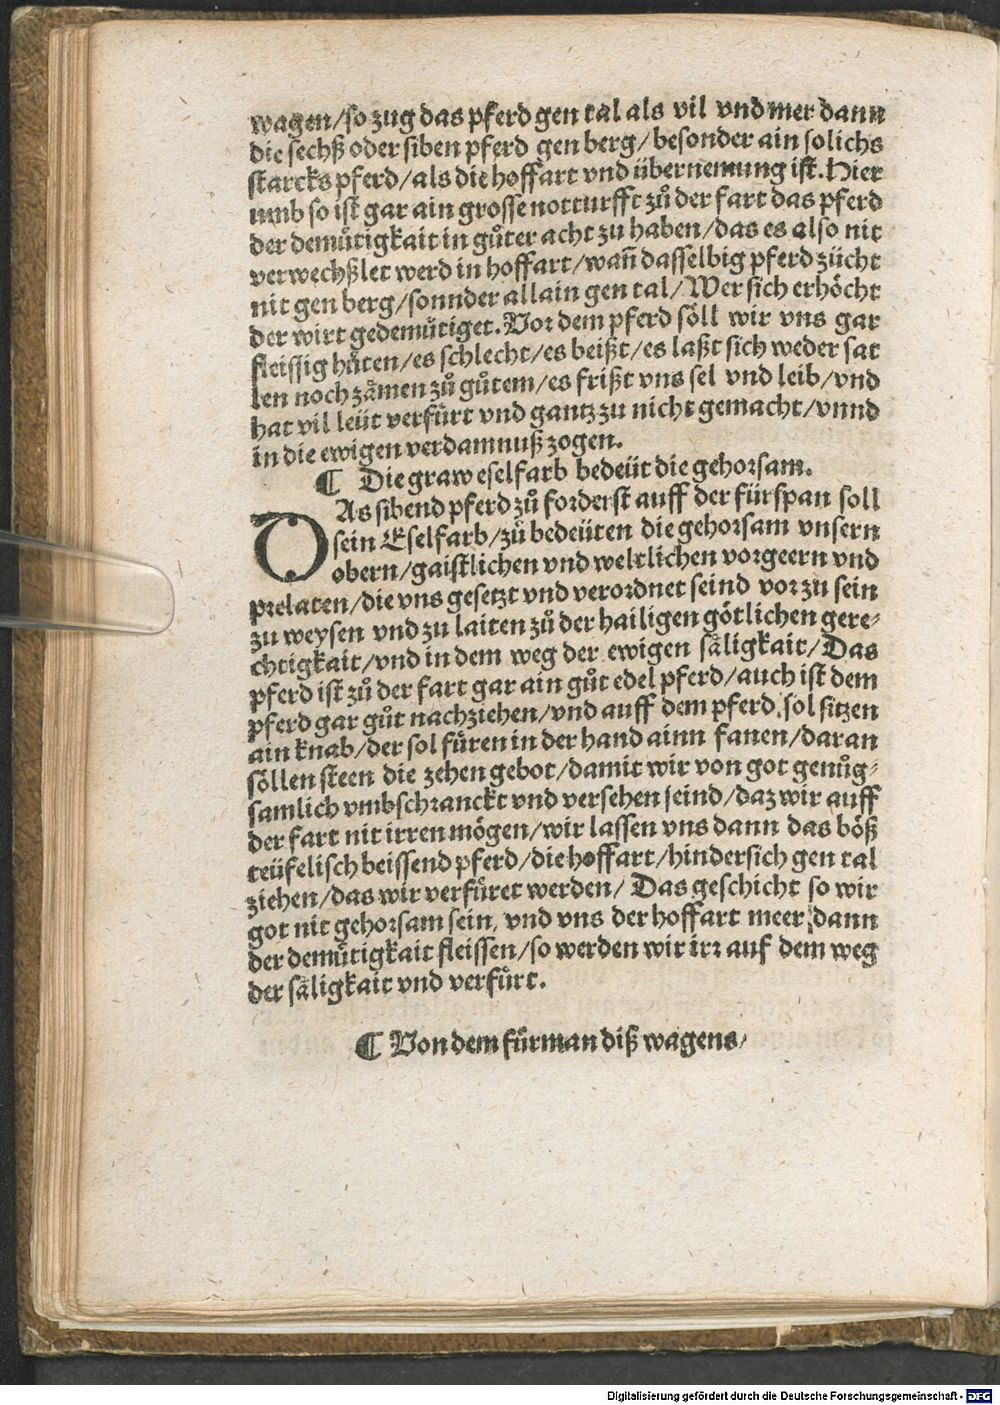 wagen/so zug das pferd gen tal als vil vnd mer dann
die sechß oder siben pferd gen berg/ besonder ain solichs
starcks pferd/als die hoffart vnd übernemung ist. Hier
umb so ist gar ain grosse notturfft zů der fart das pferd
der demůtigkait in gůter acht zu haben/das es also nit
verwechßlet werd in hoffart/wañ dasselbig pferd zücht
nit gen berg/sonnder allain gen tal/ Wer sich erhöcht
der wirt gedemůtiget. Vor dem pferd söll wir vns gar
fleissig hůten/es schlecht/es beißt/es laßt sich weder sat
len noch zåmen zů gůtem/es frißt vns sel vnd leib/vnd
hat vil leüt verfůrt vnd gantz zu nicht gemacht/vnnd
in die ewigen verdamnuß zogen.
¶ Die graw eselfarb bedeüt die gehorsam.
DAs sibend pferd zů forderst auff der fürspan soll
sein Eselfarb/zů bedeüten die gehorsam vnsern
obern/gaistlichen vnd weltlichen vorgeern vnd
prelaten/die vns gesetzt vnd verordnet seind vor zu sein
zu weysen vnd zu laiten zů der hailigen götlichen gere-
chtigkait/vnd in dem weg der ewigen såligkait/ Das
pferd ist zů der fart gar ain gůt edel pferd/auch ist dem
pferd gar gůt nachziehen/vnd auff dem pferd sol sitzen
ain knab/der sol fůren in der hand ainn fanen/daran
söllen steen die zehen gebot/damit wir von got genůg-
samlich vmbschranckt vnd versehen seind/daz wir auff
der fart nit irren mögen/wir lassen vns dann das böß
teüfelisch beissend pferd/die hoffart/hindersich gen tal
ziehen/das wir verfůret werden/ Das geschicht so wir
got nit gehorsam sein, vnd vns der hoffart meer dann
der demůtigkait fleissen/so werden wir irr auf dem weg
der såligkait vnd verfůrt.
¶ Von dem fůrman diß wagens/
Digitalisierung gefördert durch die Deutsche Forschungsgemeinschaft - DFG